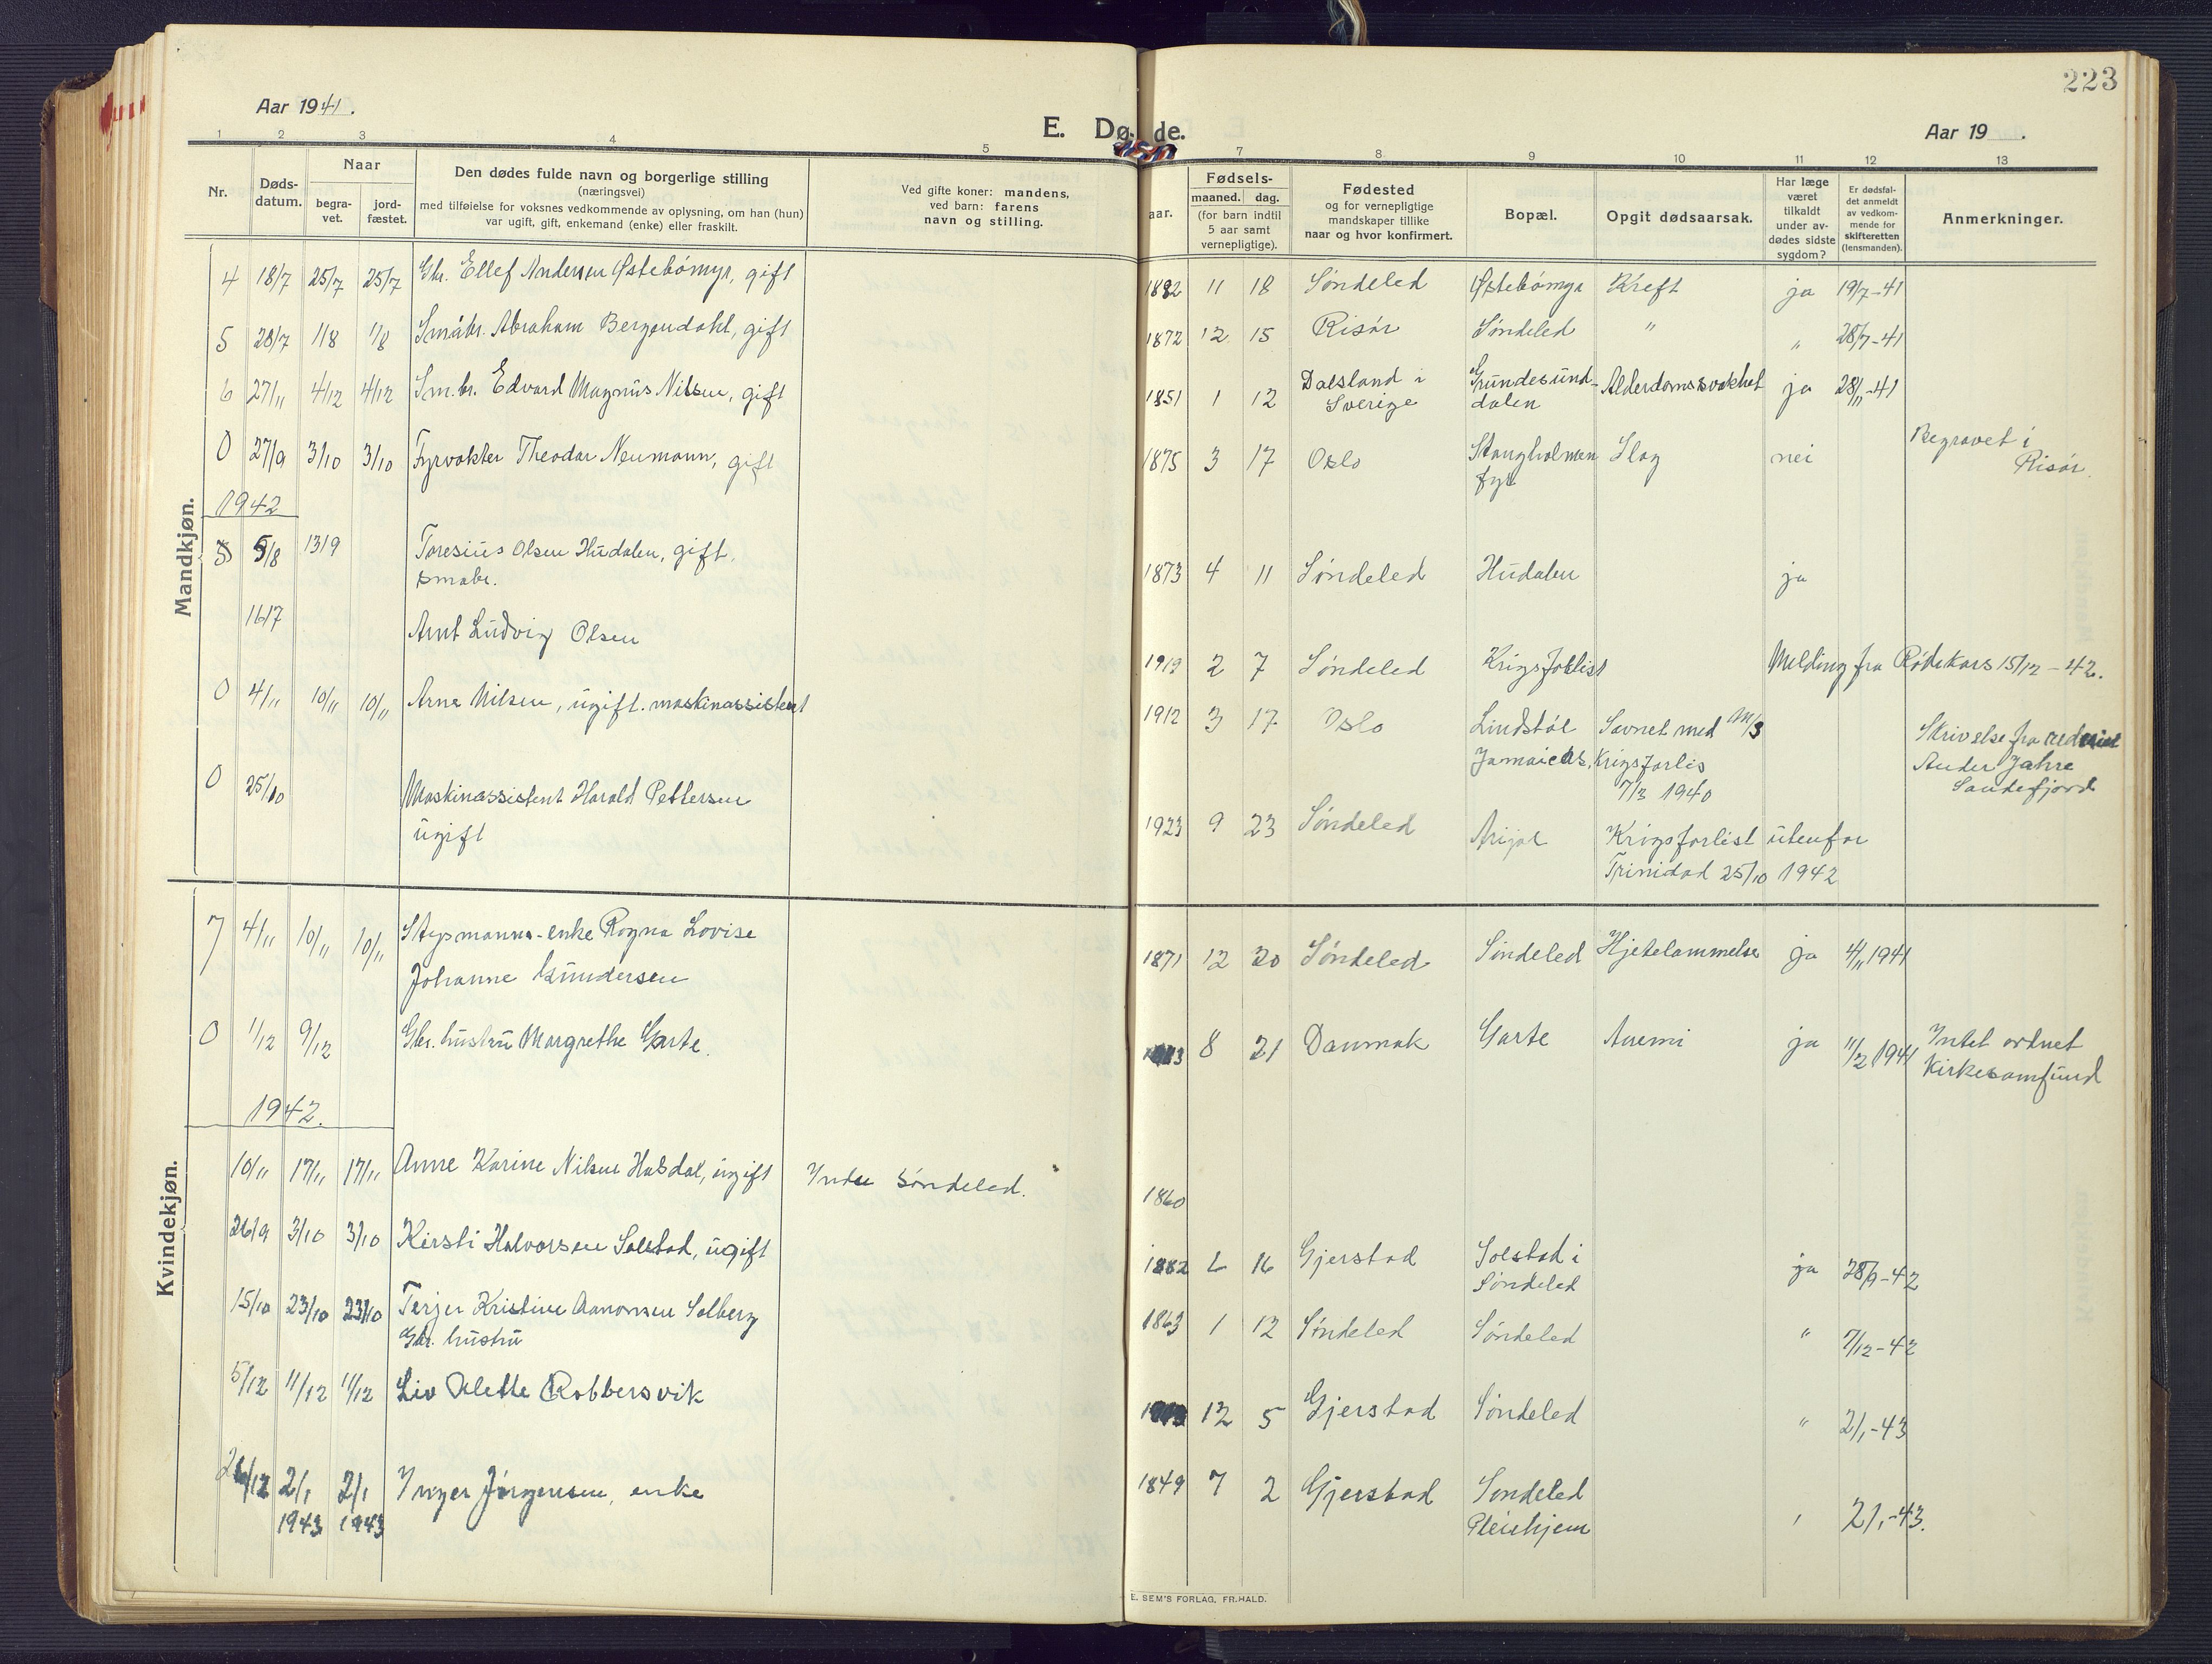 223
Aar 1941.
E. Dø
de.
Aar 19 .
1 2 3 4 5 7 8 9 10 11 12 13
Nr.
Døds-
datum.
Naar
begra-
vet.
jord-
fæstet.
Den dødes fulde navn og borgerlige stilling
(næringsvei)
med tilføielse for voksnes vedkommende av oplysning, om han (hun)
var ugift, gift, enkemand (enke) eller fraskilt.
Ved gifte koner: mandens,
ved barn: farens
navn og stilling.
aar.
Fødsels-
maaned. dag.
(for barn indtil
5 aar samt
vernepligtige).
Fødested
og for vernepligtige
mandskaper tillike
naar og hvor konfirmert.
Bopæl.
Opgit dødsaarsak.
Har læge
været
tilkaldt
under av-
dødes sidste
sygdom?
Er dødsfal-
det anmeldt
av vedkom-
mende for
skifteretten
(lensmanden).
Anmerkninger.
Mandkjøn.
4 18/7 25/7 25/7 Gbr. Ellef Andersen Østebómyr, gift 1882 11 18 Søndeled Østebómyr Kreft ja 19/7-41
5 28/7 1/8 1/8 Småbr. Abraham Bergendahl, gift 1872 12 15 Risør Søndeled " " 28/7-41
6 27/11 4/12 4/12 Sm.br. Edvard Magnus Nilsen, gift 1851 1 12 Dalsland i Grundesund- Alderdomssvakhet ja 28/11-41
Sverige dalen
0 27/9 3/10 3/10 Fyrvokter Theodor Neumann, gift 1875 3 17 Oslo Stangholmen Slag nei Begravet i
fyr Risør.
1942
5/8 13/9 Toresius Olsen Hudalen, gift. 1873 4 11 Søndeled Hudalen ja
småbr.
16/7 Arnt Ludvig Olsen 1919 2 7 Søndeled Krigsforlist Melding fra Rødekors 15/12-42.
0 4/11 10/11 10/11 Arne Nilsen, ugift. maskinassistent 1912 3 17 Oslo Lindstøl Savnet med M/S
Jamaica, Krigsforlis
7/3 1940
Skrivelse fra rederiet
Ander Jahre
Sandefjord
0 25/10 Maskinassistent Harald Pettersen 1923 9 23 Søndeled Krigsforlist utenfor
ugift Trinidad 25/10 1942
Kvindekjøn.
7 4/11 10/11 10/11 Stysmanns-enke Ragna Lovise 1871 12 20 Søndeled Søndeled Hjetelammelse ja 4/11 1941
Johanne Gundersen
0 1/12 9/12 Gbr. hustru Margrethe Garte. 8 21 Danmak Garte Anemi ja 11/2 1941 Intet ordnet
Kirkesamfund
1942.
10/11 17/11 17/11 Anne Karine Nilsen Halsdal, ugift Indre Søndeled. 1860
26/9 3/10 3/10 Kirsti Halvorsen Solstad, ugift 1882 16 Gjerstad Solstad i ja 28/9-42
Søndeled
15/10 23/10 23/10 Terjer Kristine Aanonsen Solberg 1863 1 12 Søndeled Søndeled " 7/12-42
Gbr. hustru
5/12 11/12 11/12 Liv Alette Robbersvik 12 5 Gjerstad Søndeled " 2/1-43
26/12 2/1 2/1 Inger Jørgensen, enke 1849 7 2 Gjerstad Søndeled
1943 1943 Pleiehjem 2/1-43.
E. SEM'S FORLAG, FR.HALD.